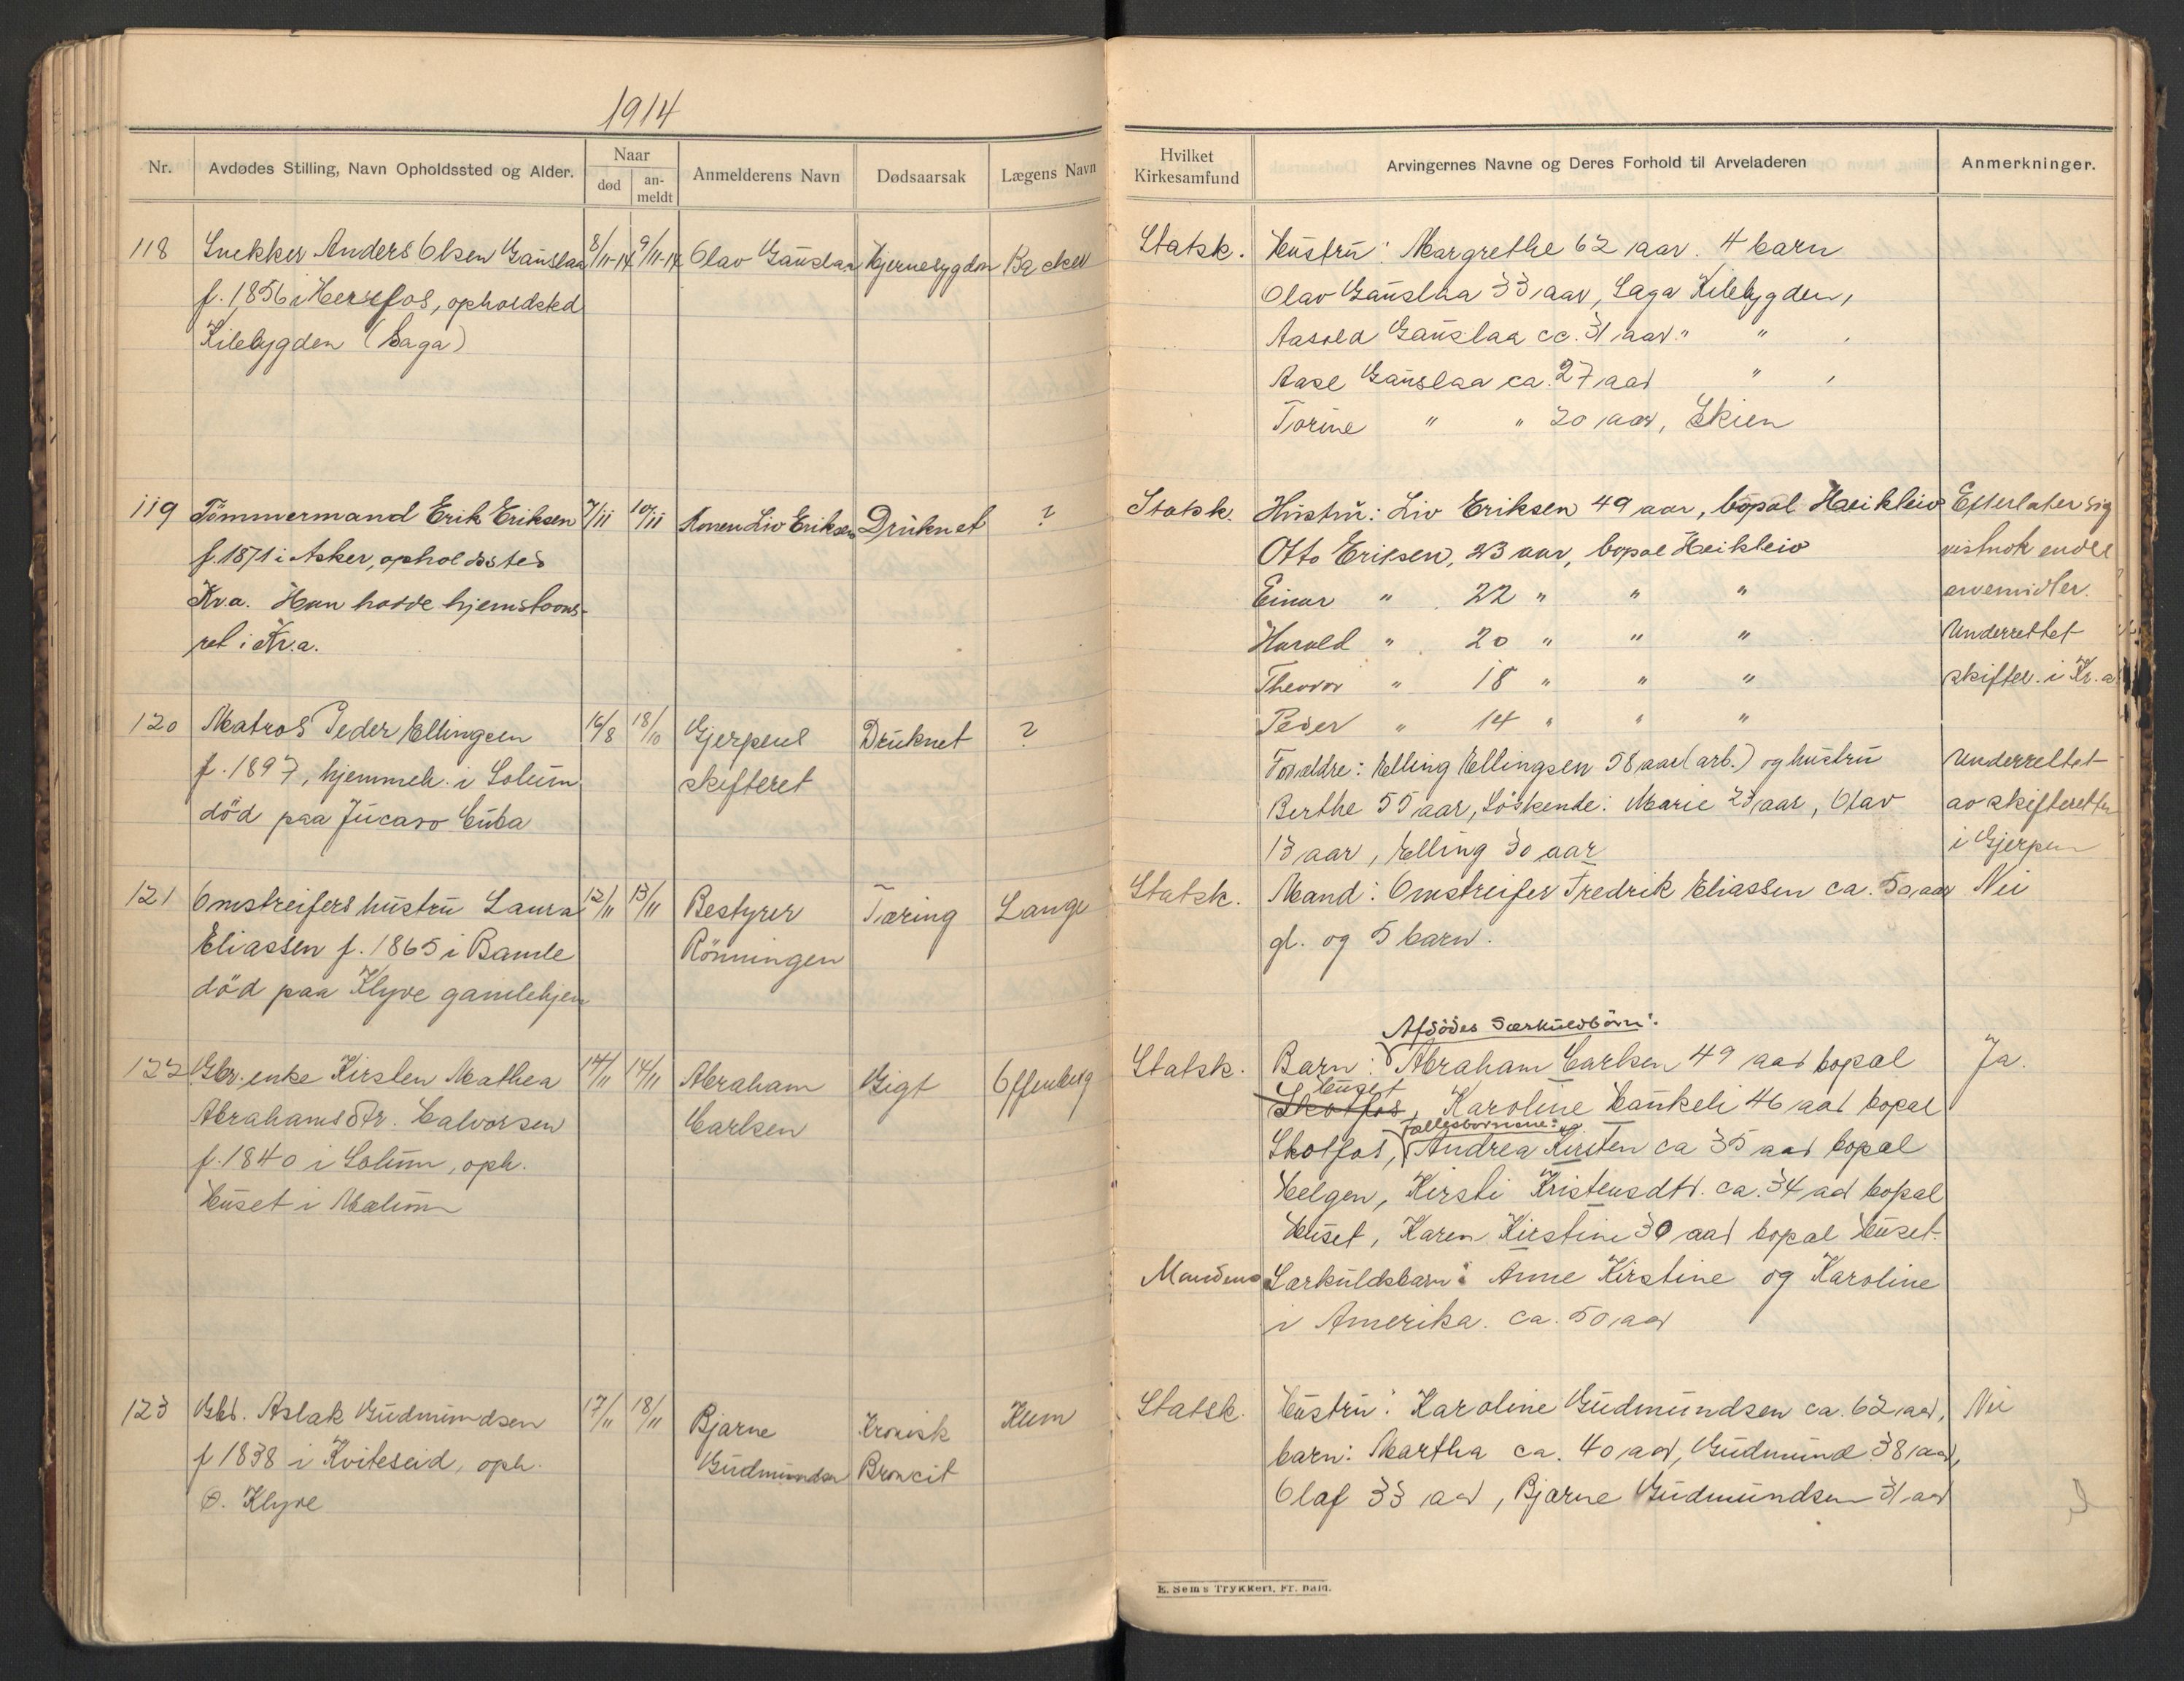 1914
Nr.
Avdødes Stilling, Navn Opholdssted og Alder.
Naar
død
an-
meldt
Anmelderens Navn
Dødsaarsak
Lægens Navn
118
Snekker Anders Olsen Gauslaa
8/11-14
9/11-14
Olav Gauslaa
Hjernesygdom
Backer
f. 1856 i Herefos, opholdsted
Kilebygden (Saga)
119
Tömmermand Erik Eriksen
7/11
10/11
Konen Liv Eriksen
Druknet
?
f. 1871 i Asker, opholdssted
Kr.a. Han hadde hjemstavns-
ret i Kr.a.
120
Matros Peder Ellingsen
16/8
18/10
Gjerpens
Druknet
?
f. 1897, hjemmeh. i Solum
skifteret
död paa Jucaro Cuba
121
Omstreifers hustru Laura
12/11
13/11
Bestyrer
Tæring
Lange
Eliassen f. 1865 i Bamle
Rönningen
död paa Klyve gamlehjem
122
Gbr. enke Kirsten Mathea
14/11
14/11
Abraham
Gigt
Offenberg
Abrahamsdtr. Halvorsen
Carlsen
f. 1840 i Solum, oph.
Huset i Mælum
123
Gbr. Aslak Gudmundsen
17/11
18/11
Bjarne
Kronisk
Kum
f 1838 i Kviteseid, oph.
Gudmundsen
Broncit
Ø. Klyve
Hvilket
Kirkesamfund
Arvingernes Navne og Deres Forhold til Arveladeren
Anmerkninger.
Statsk.
Hustru: Margrethe 62 aar. 4 barn
Olav Gauslaa 33 aar, Saga Kilebygden,
Aasold Gauslaa cc. 31 aar " " ,
Aase Gauslaa ca. 27 aar " ,
Torine " " 20 aar, Skien
Statsk.
Hustru: Liv Eriksen 49 aar, bopal Heikleiv
Efterlater sig
Otto Eriksen, 23 aar, bopæl Heikleiv
vistnok endel
Einar " 22 " " "
arvemidler.
Harald " 20 " " "
Underrettet
Theodor " 18 " " "
skifter. i Kr.a
Peder " 14 " " "
Foraldre: Elling Ellingsen 58 aar (arb.) og hustru
Underrettet
Berthe 55 aar, Söskende: Marie 23 aar, Olav
av skifteretten
13 aar, Elling 30 aar
i Gjerpen
Statsk.
Mand: Omstreifer Fredrik Eliassen ca. 50 aar
Nei
gl. og 5 barn.
Afdödes Særkuldbörn:
Statsk.
Barn: Abraham Carlsen 49 aar bopal
Ja.
Huset
Skotfos, Karoline Haukeli 46 aar bopal
Fællesbørnene:
Skotfos, Andrea Kirsten ca 35 aar bopal
Helgen, Kirsti Kristensdtr. ca. 34 aar bopal
Huset, Karen Kirstine 30 aar bopal Huset.
Mandens Særkuldsbarn: Anne Kirstine og Karoline
i Amerika. ca. 50 aar
Statsk.
Hustru: Karoline Gudmundsen ca. 62 aar,
Nei
barn: Martha ca. 40 aar, Gudmund 38 aar,
Olaf 33 aar, Bjarne Gudmundsen 31 aar
E. Sem's Trykkeri, Fr. hald.